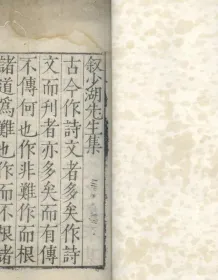 叙少湖先生集
古今作詩文者多矣作詩
文而刋者亦多矣而有傳
不傳何也作非難作而根
諸道爲難也作而不根諸